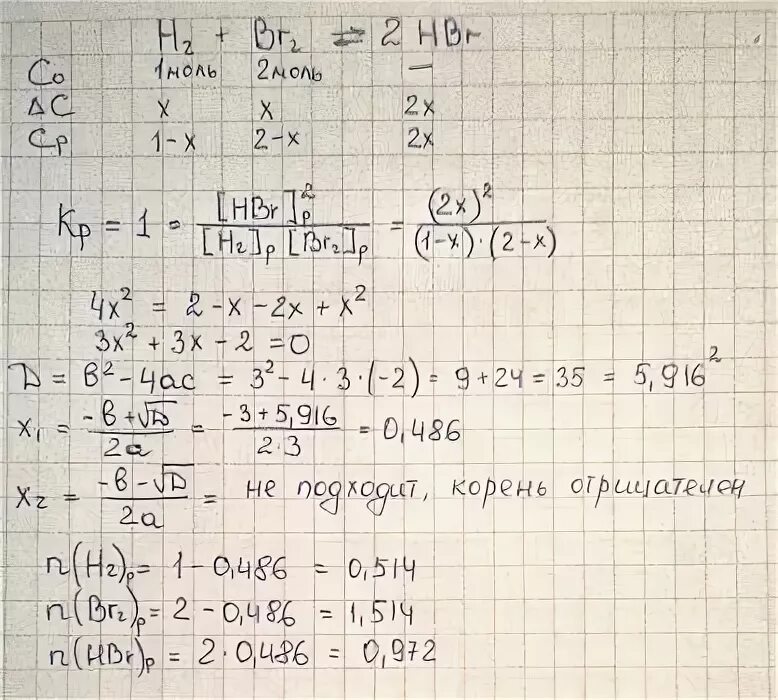 H₂ + Br₂ = 2 HBr
C₀ 1моль 2моль —
ΔC x x 2x
Cр 1-x 2-x 2x
Kр = 1 = [HBr]р² / [H₂]р [Br₂]р = (2x)² / (1-x)·(2-x)
4x² = 2 - x - 2x + x²
3x² + 3x - 2 = 0
D = в² - 4ac = 3² - 4·3·(-2) = 9 + 24 = 35 = 5,916²
x₁ = -в+√D / 2a = -3+5,916 / 2·3 = 0,486
x₂ = -в-√D / 2a = не подходит, корень отрицателен
n(H₂)р = 1 - 0,486 = 0,514
n(Br₂)р = 2 - 0,486 = 1,514
n(HBr)р = 2·0,486 = 0,972